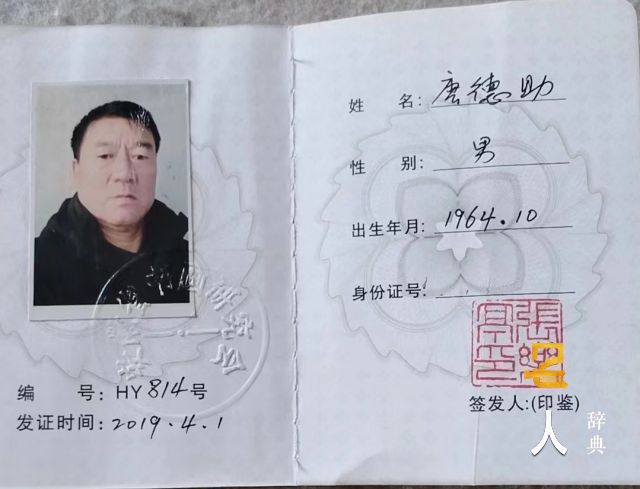 编 号: HY 814 号
发证时间: 2019.4.1
姓 名: 唐德助
性 别: 男
出生年月: 1964.10
身份证号:
签发人:(印鉴)
名人
辞典